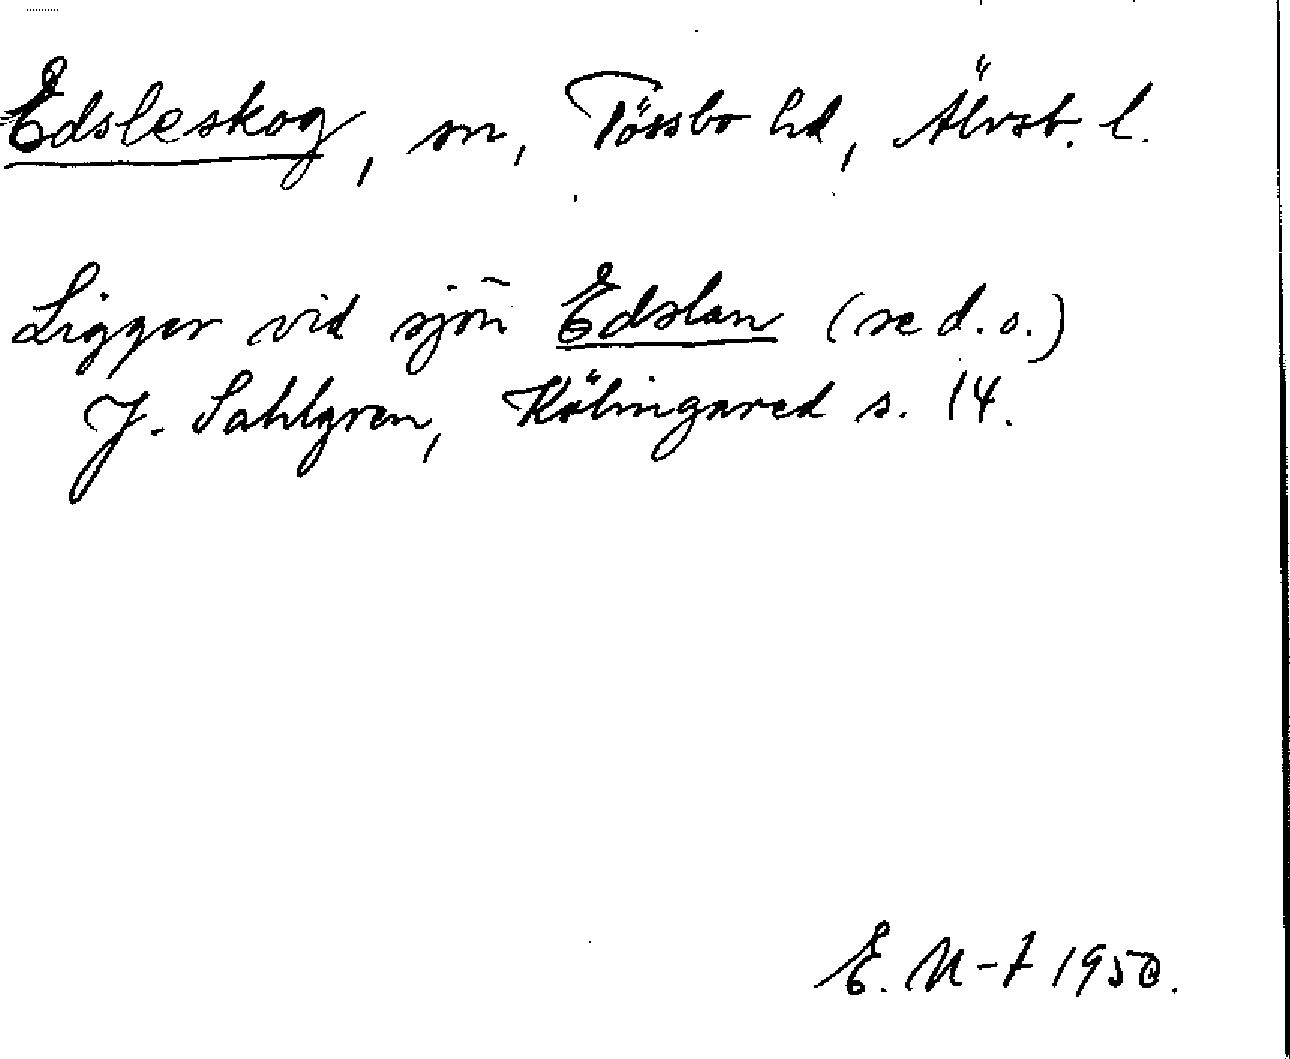 Edsleskog, sn, Tössbo hd, Älvsb. l.
Ligger vid sjön Edslan (se d. o.)
J. Sahlgren, Kölingared s. 14.
E. N-t 1950.